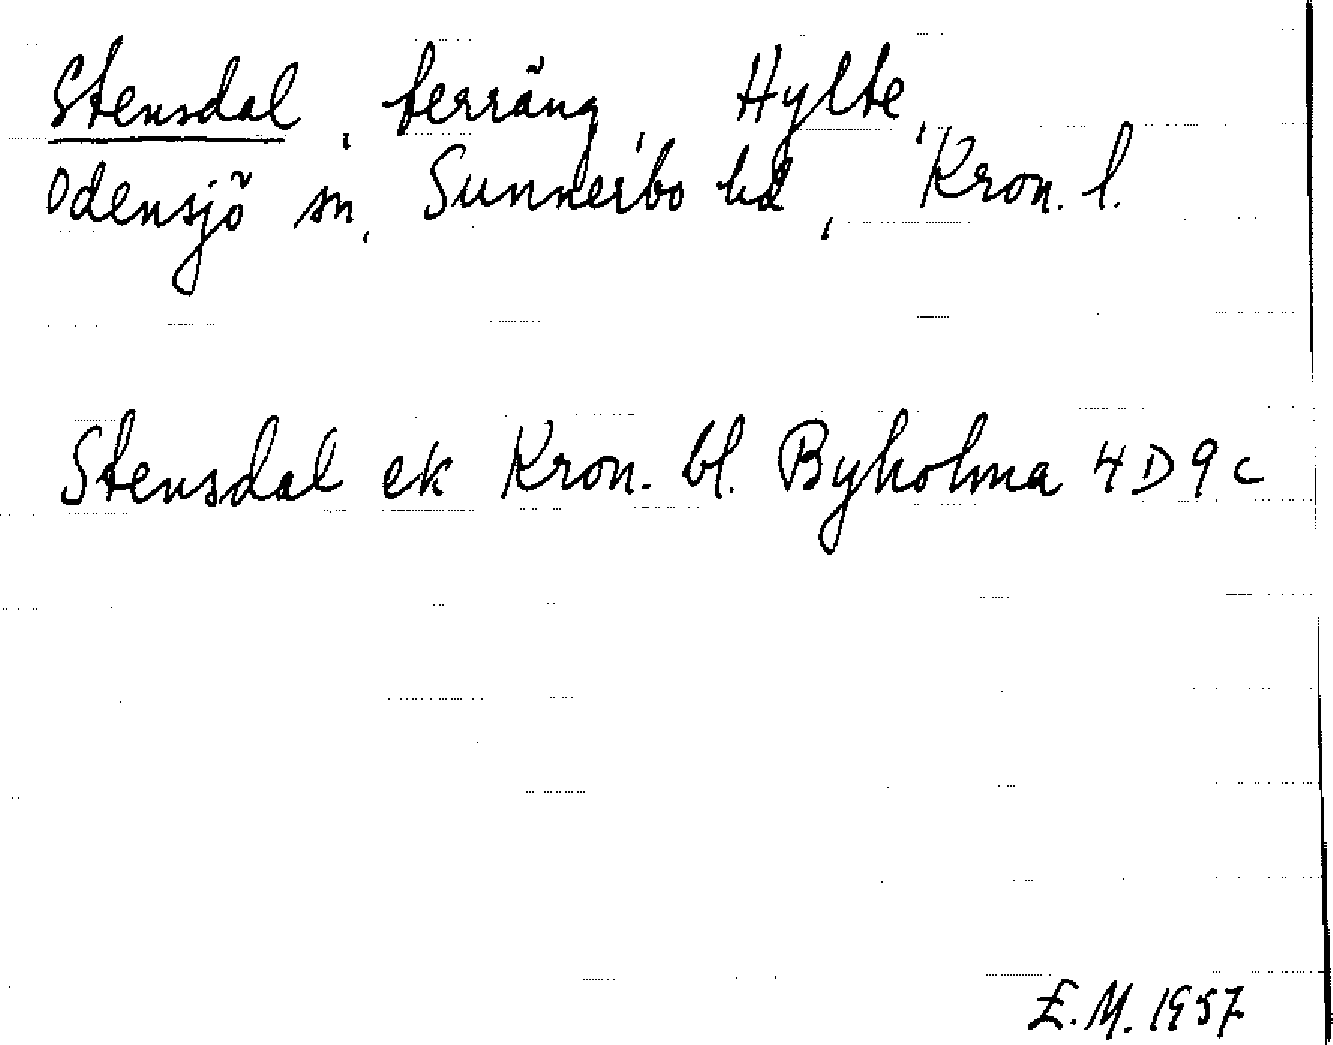 Stensdal, terräng, Hylte,
Odensjö sn, Sunnerbo hd, Kron. l.
Stensdal ek Kron. bl. Byholma 4D9c
E.M. 1957